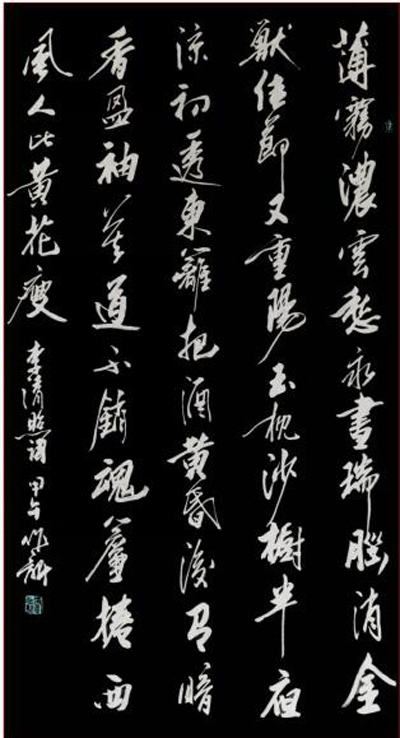 薄霧濃雲愁永晝瑞腦消金
獸佳節又重陽玉枕沙樹半夜
涼初透東籬把酒黃昏後有暗
香盈袖莫道不銷魂簾捲西
風人比黃花瘦
李清照詞 甲午